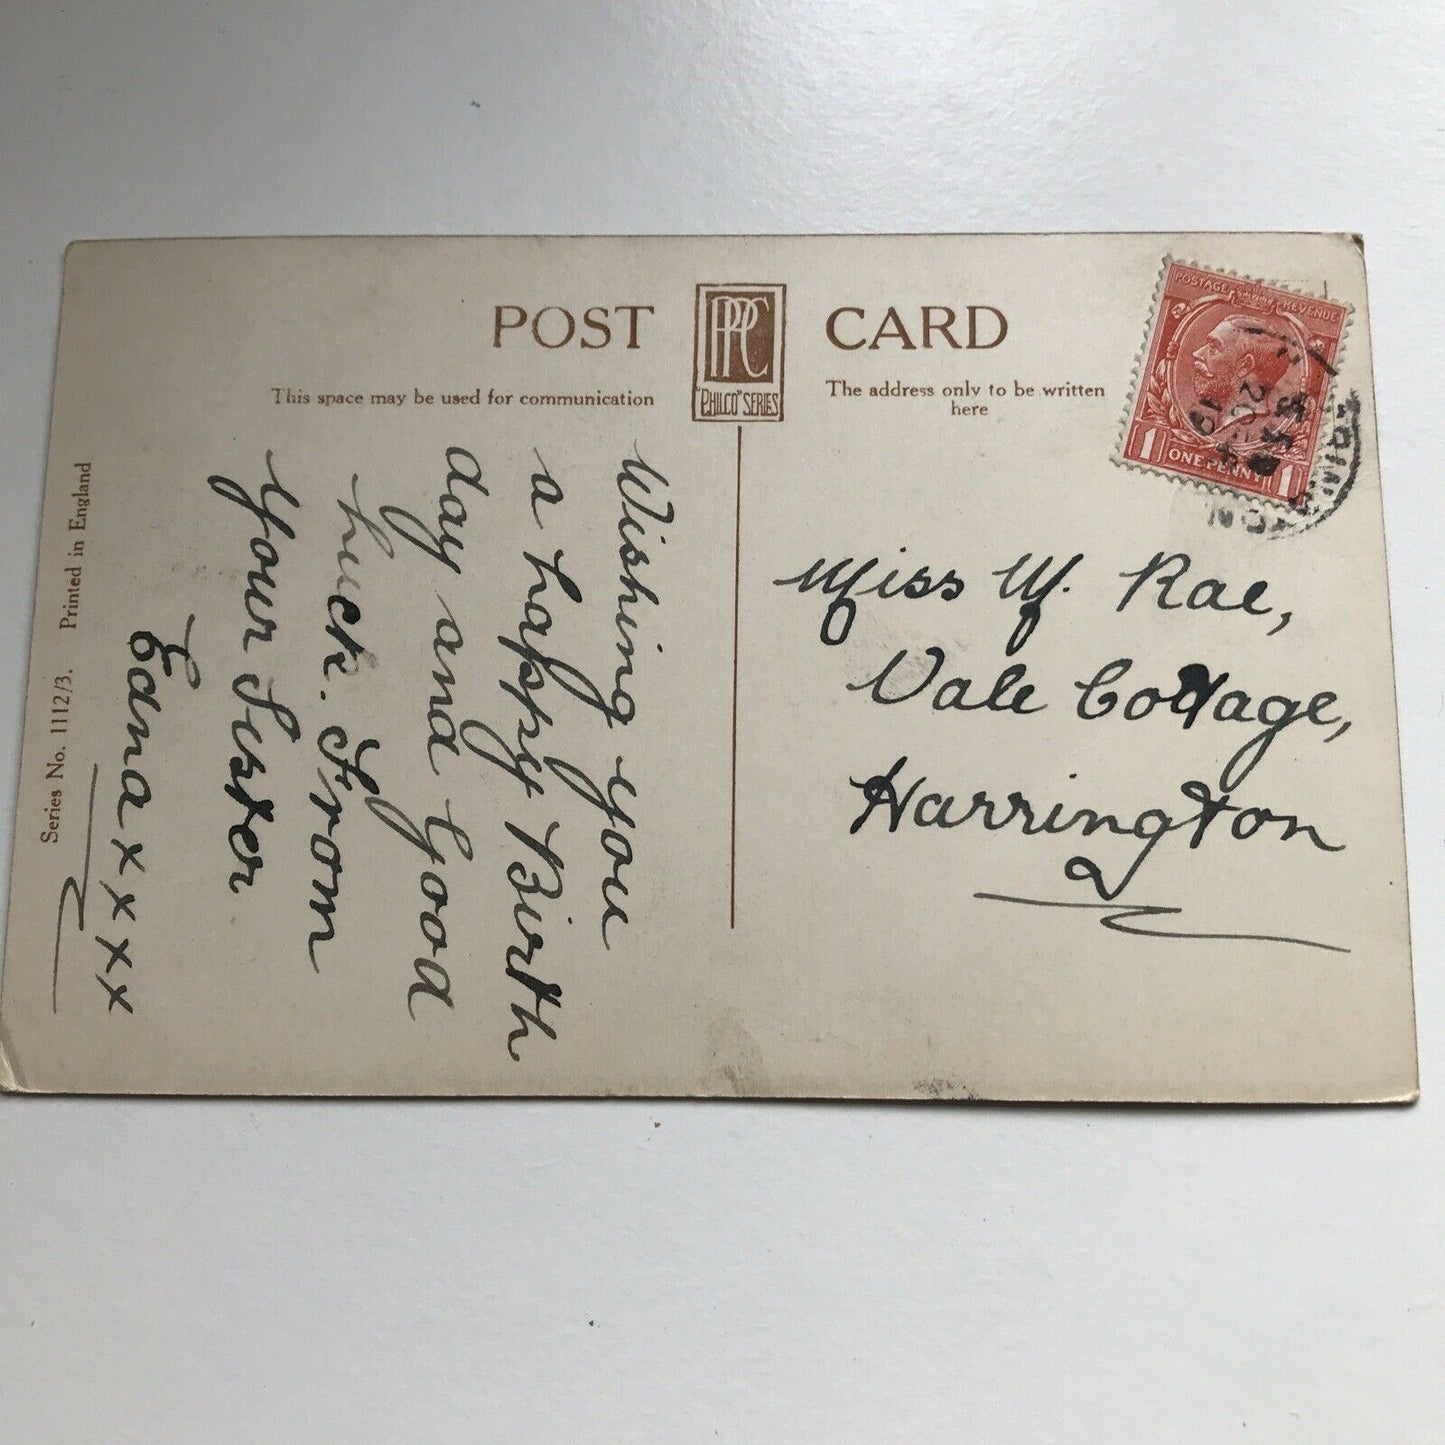 POST CARD
PPC
"PHILCO" SERIES
This space may be used for communication
The address only to be written
here
Wishing you
a happy Birth
day and Good
luck. From
Your Sister
Edna x x x x
Miss M. Rae,
Vale Cottage,
Harrington
POSTAGE REVENUE
1 ONE PENNY 1
Series No. 1112/3. Printed in England